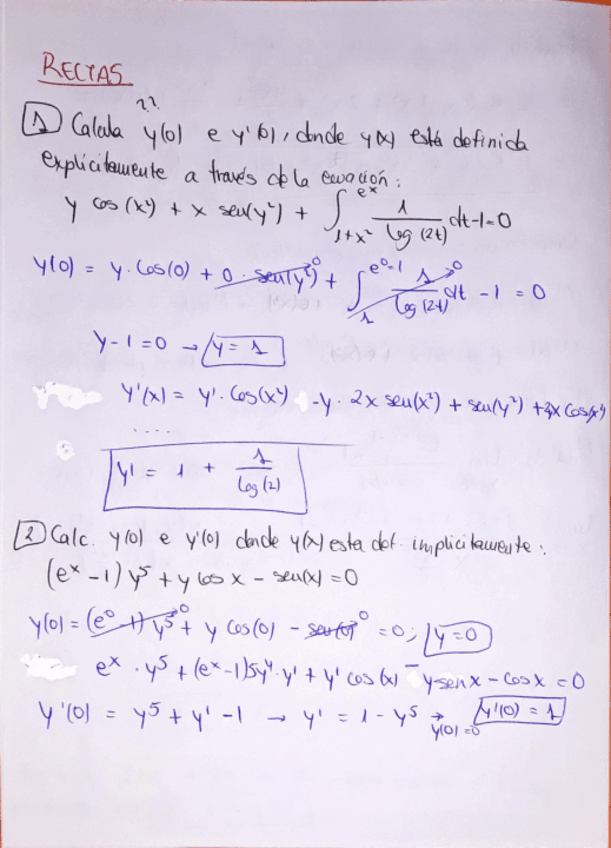 RECTAS
1 Calcula y(0) e y'(0), donde y(x) está definida
explícitamente a través de la ecuación:
y cos(x²) + x sen(y²) + ∫_{1+x²}^{e^x} 1/log(2t) dt - 1 = 0
y(0) = y · Cos(0) + 0 · sen(y²) + ∫_{1}^{e^0=1} 1/log(2t) dt - 1 = 0
y - 1 = 0 → y = 1
y'(x) = y' · Cos(x²) - y · 2x sen(x²) + sen(y²) +
....
y' = 1 + 1/log(2)
2 Calc. y(0) e y'(0) donde y(x) esta def. implicitamente:
(e^x - 1) y⁵ + y cos x - sen(x) = 0
y(0) = (e⁰ - 1) y⁵ + y cos(0) - sen(0) = 0; y = 0
e^x · y⁵ + (e^x - 1) 5y⁴ · y' + y' cos(x) - y sen x - cos x = 0
y'(0) = y⁵ + y' - 1 → y' = 1 - y⁵ → y(0) = 0 y'(0) = 1